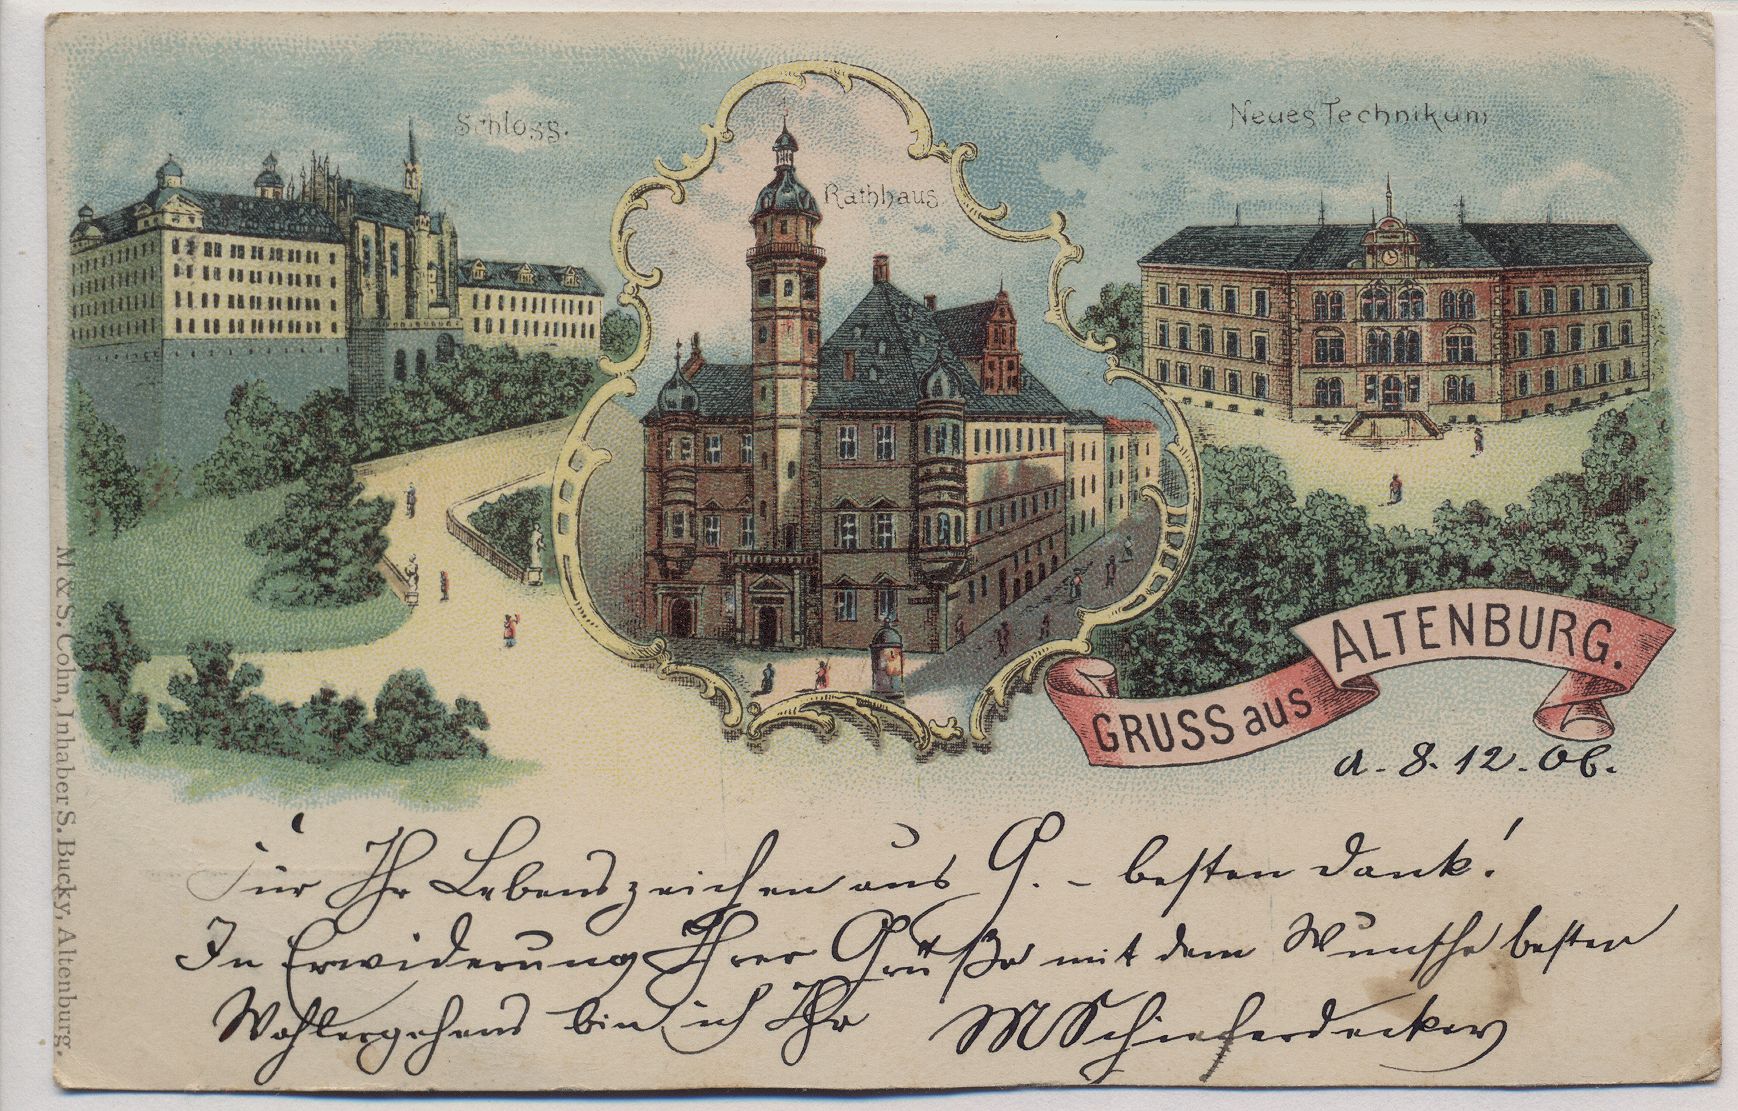 Schloss.
Rathhaus
Neues Technikum
GRUSS aus ALTENBURG.
d. 8. 12. 06.
Für Ihr Lebenszeichen aus G. – besten Dank!
In Erwiderung Ihrer Grüße mit dem Wunsche besten
Wohlergehens bin ich Ihr MSchieferdecker
M & S. Cohn, Inhaber S. Bucky, Altenburg.